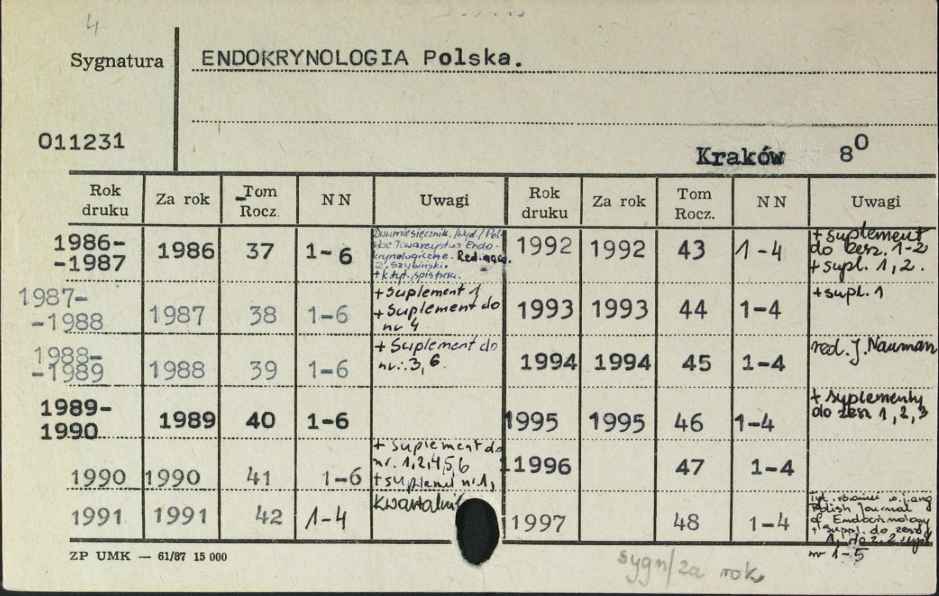 4
Sygnatura
ENDOKRYNOLOGIA Polska.
011231
Kraków 8⁰
Rok druku Za rok Tom Rocz. NN Uwagi Rok druku Za rok Tom Rocz. NN Uwagi
1986-
-1987 1986 37 1-6
Dwumiesięcznik. /Wyd./ Pol-
skie Towarzystwo Endo-
krynologiczne. Red.nacz.
Z. Szybiński.
+ k.tyt., spis tr.
1992 1992 43 1-4
+ suplement
do zesz. 1-2
+ supl. 1, 2.
1987-
-1988 1987 38 1-6
+ Suplement 1
+ Suplement do
nr 4
1993 1993 44 1-4 + supl. 1
1988-
-1989 1988 39 1-6
+ Suplement do
nr. 3, 6.
1994 1994 45 1-4 red. J. Nauman
1989-
1990 1989 40 1-6
1995 1995 46 1-4
+ suplementy
do zesz 1, 2, 3
1990 1990 41 1-6
+ suplement do
nr. 1, 2, 4, 5, 6
+ suplement nr 1,
1996 47 1-4
1991 1991 42 1-4 Kwartalnik
1997 48 1-4
Tyt. w j. ang
Polish Journal
of Endocrinology
+ suppl. do zesz.
1, do z. 2 supl.
nr 1-5
ZP UMK — 61/87 15 000
sygn/za rok